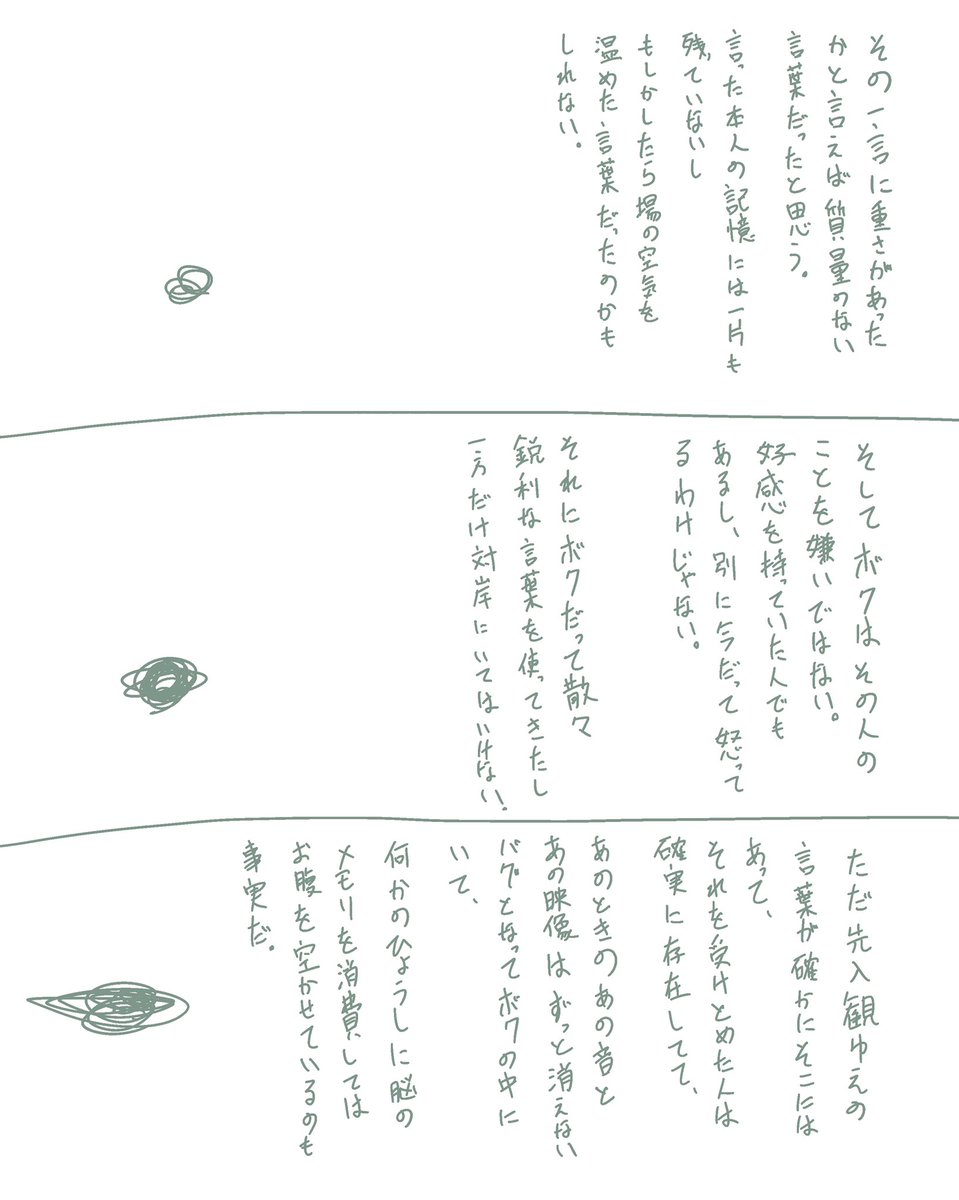 その一言に重さがあった
かと言えば質量のない
言葉だったと思う。
言った本人の記憶には一片も
残っていないし
もしかしたら場の空気を
温めた言葉だったのかも
しれない。
そしてボクはその人の
ことを嫌いではない。
好感を持っていた人でも
あるし、別に今だって怒って
るわけじゃない。
それにボクだって散々
鋭利な言葉を使ってきたし
一方だけ対岸にいてはいけない。
ただ先入観ゆえの
言葉が確かにそこには
あって、
それを受けとめた人は
確実に存在してて、
あのときのあの音と
あの映像はずっと消えない
バグとなってボクの中に
いて、
何かのひょうしに脳の
メモリを消費しては
お腹を空かせているのも
事実だ。